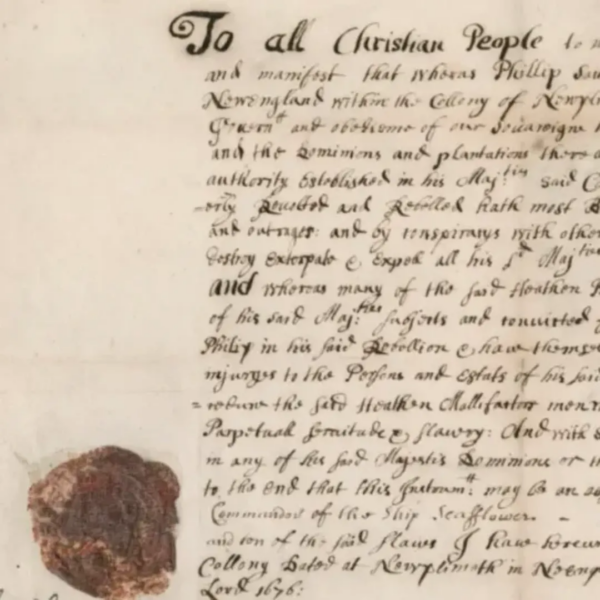 To all Christian People to
and manifest that wheras Phillip
Newengland within the Collony of Newpl
Governt and obedienc of our Souaraigne
and the Dominions and plantations there
authority Established in his Maj:ties said C
-erly Reuolted and Rebelled hath most B
and outrages: and by conspiracys with other
destroy Exterpate & Expell all his sd Majties
And wheras many of the said Heathen
of his said Maj:ties subjects and convicted
Philip in his said Rebellion & have themse
injurges to the Persons and Estats of his said
=reduce the said Heathen Mallifactors
Parpetuall servitude & slavery: And with
in any of his said Majestis Dominions or th
to the End that this Instrumtt: may be an
Commander of the Ship Seafflower -
and ten of the said slaves I have hereu
Collony Dated at Newplimoth in Neweng
Lord 1676: